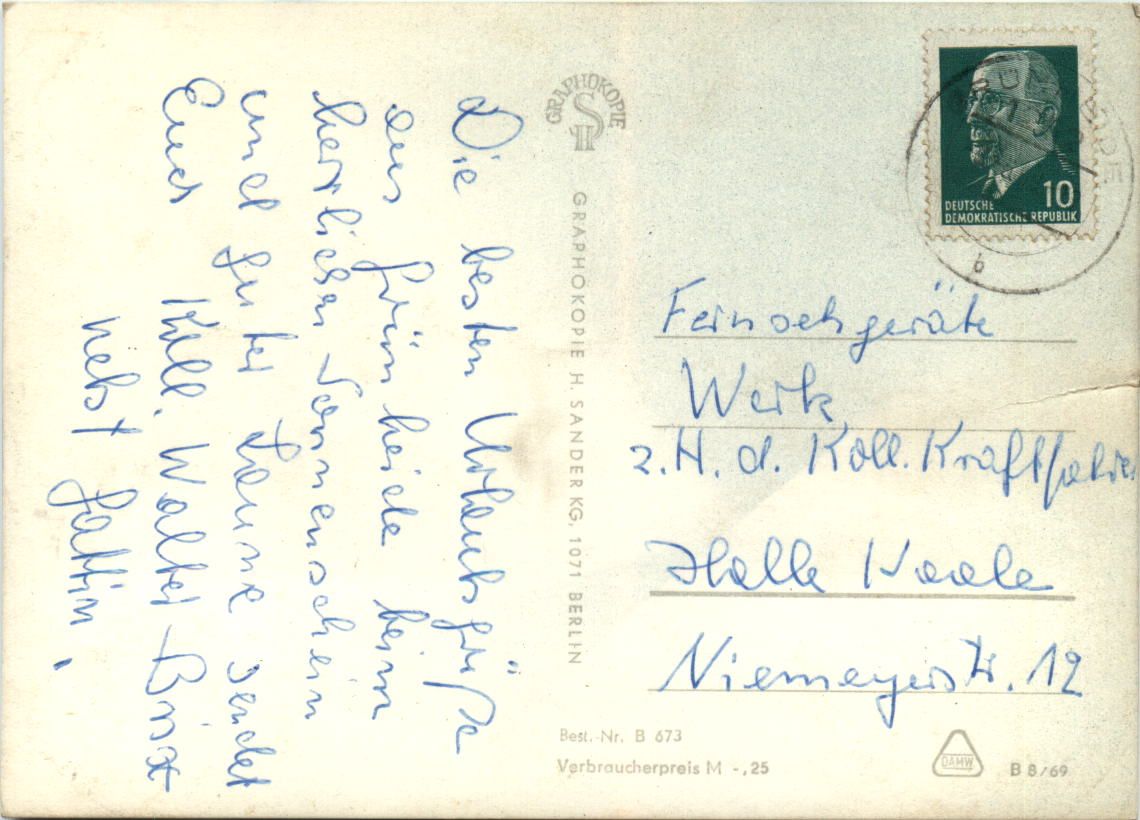 Die besten Urlaubsgrüße
aus Grünheide beim
herrlichen Sonnenschein
und guter Laune sendet
Euch Koll. Walter
nebst Gattin.
GRAPHOKOPIE
H S
GRAPHOKOPIE H. SANDER KG, 1071 BERLIN
DEUTSCHE
DEMOKRATISCHE REPUBLIK
10
b
Fernsehgeräte
Werk
z. H. d. Koll. Kraftfahrer
Halle Saale
Niemeyerstr. 12
Best.-Nr. B 673
Verbraucherpreis M -,25
DAMW
B 8/69